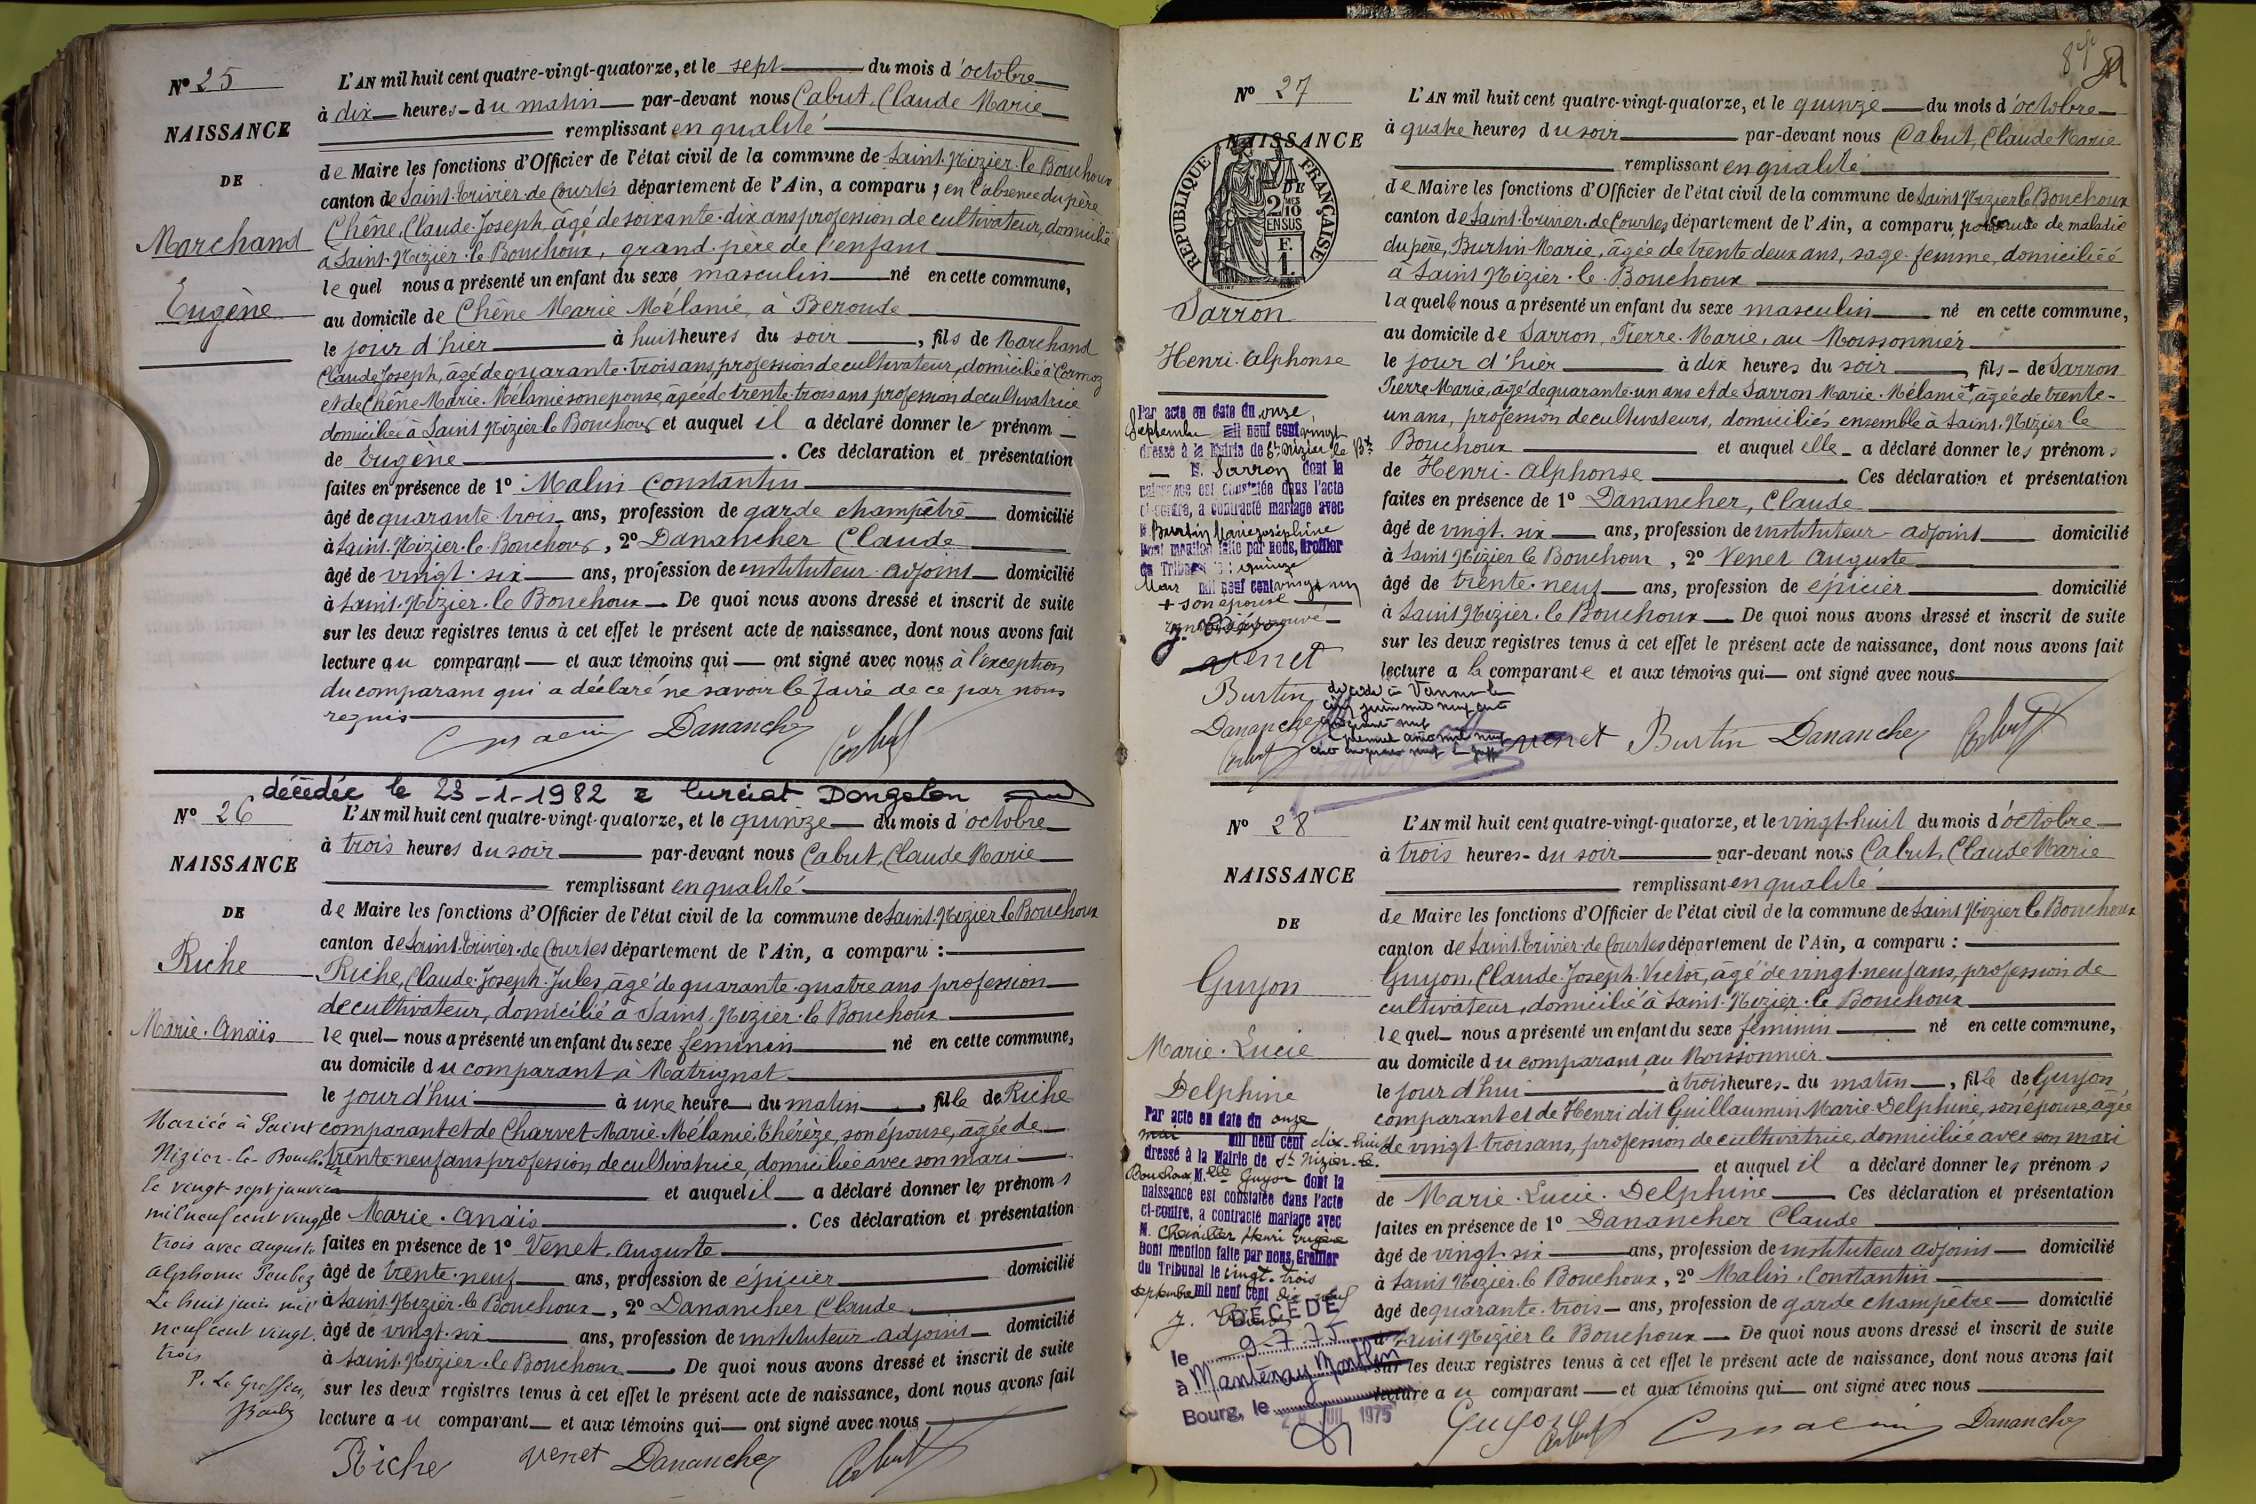 N° 25
NAISSANCE
DE
Marchand
Eugène
L'AN mil huit cent quatre-vingt-quatorze, et le sept du mois d'octobre
à dix heures du matin par-devant nous Cabut, Claude Marie
remplissant en qualité
de Maire les fonctions d'Officier de l'état civil de la commune de Saint-Nizier-le-Bouchoux
canton de Saint-Trivier-de-Courtes département de l'Ain, a comparu ; en l'absence du père
Chêne, Claude-Joseph, âgé de soixante-dix ans profession de cultivateur, domicilié
à Saint-Nizier-le-Bouchoux, grand père de l'enfant
lequel nous a présenté un enfant du sexe masculin né en cette commune,
au domicile de Chêne Marie Mélanie, à Beroude
le jour d'hier à huit heures du soir, fils de Marchand
Claude Joseph, âgé de quarante-trois ans, profession de cultivateur, domicilié à Cormoz
et de Chêne Marie-Mélanie son épouse, âgée de trente-trois ans profession de cultivatrice
domiciliée à Saint Nizier le Bouchoux et auquel il a déclaré donner le prénom
de Eugène. Ces déclaration et présentation
faites en présence de 1° Malin Constantin
âgé de quarante-trois ans, profession de garde champêtre domicilié
à Saint-Nizier-le-Bouchoux, 2° Danancher Claude
âgé de vingt-six ans, profession de instituteur-adjoint domicilié
à Saint-Nizier-le-Bouchoux. De quoi nous avons dressé et inscrit de suite
sur les deux registres tenus à cet effet le présent acte de naissance, dont nous avons fait
lecture au comparant et aux témoins qui ont signé avec nous à l'exception
du comparant qui a déclaré ne savoir le faire de ce par nous
requis
Malin Danancher Cabut
décédée le 23-1-1982 à Curciat Dongalon
N° 26
NAISSANCE
DE
Riche
Marie-Anaïs
L'AN mil huit cent quatre-vingt-quatorze, et le quinze du mois d'octobre
à trois heures du soir par-devant nous Cabut, Claude Marie
remplissant en qualité
de Maire les fonctions d'Officier de l'état civil de la commune de Saint-Nizier le Bouchoux
canton de Saint-Trivier-de-Courtes département de l'Ain, a comparu :
Riche, Claude-Joseph-Jules, âgé de quarante-quatre ans profession
de cultivateur, domicilié à Saint-Nizier-le-Bouchoux
lequel nous a présenté un enfant du sexe féminin né en cette commune,
au domicile du comparant à Matrignat
le jour d'hui à une heure du matin, fille de Riche
comparant et de Charvet Marie-Mélanie-Thérèze, son épouse, âgée de
trente-neuf ans profession de cultivatrice, domiciliée avec son mari
et auquel il a déclaré donner les prénoms
de Marie-Anaïs. Ces déclaration et présentation
faites en présence de 1° Venet Auguste
âgé de trente-neuf ans, profession de épicier domicilié
à Saint-Nizier-le-Bouchoux, 2° Danancher Claude
âgé de vingt-six ans, profession de instituteur-adjoint domicilié
à Saint-Nizier-le-Bouchoux. De quoi nous avons dressé et inscrit de suite
sur les deux registres tenus à cet effet le présent acte de naissance, dont nous avons fait
lecture au comparant et aux témoins qui ont signé avec nous
Riche Venet Danancher Cabut
Mariée à Saint
Nizier-le-Bouchoux
le vingt-sept janvier
mil neuf cent vingt
trois avec Auguste
Alphonse
Le huit juin mil
neuf cent vingt
trois
P. Le Greffier
N° 27
NAISSANCE
DE
REPUBLIQUE FRANÇAISE
2 MES 10
EN SUS
F.
1.
Sarron
Henri-Alphonse
L'AN mil huit cent quatre-vingt-quatorze, et le quinze du mois d'octobre
à quatre heures du soir par-devant nous Cabut, Claude Marie
remplissant en qualité
de Maire les fonctions d'Officier de l'état civil de la commune de Saint Nizier le Bouchoux
canton de Saint-Trivier-de-Courtes département de l'Ain, a comparu, pour cause de maladie
du père, Burtin Marie, âgée de trente deux ans, sage-femme, domiciliée
à Saint Nizier-le-Bouchoux
laquelle nous a présenté un enfant du sexe masculin né en cette commune,
au domicile de Sarron, Pierre-Marie, au Moissonnier
le jour d'hier à dix heures du soir, fils de Sarron
Pierre Marie, âgé de quarante-un ans et de Sarron Marie-Mélanie+, âgée de trente-
un ans, profession de cultivateurs, domiciliés ensemble à Saint-Nizier le
Bouchoux et auquel elle a déclaré donner les prénoms
de Henri-Alphonse. Ces déclaration et présentation
faites en présence de 1° Danancher, Claude
âgé de vingt-six ans, profession de instituteur-adjoint domicilié
à Saint Nizier le Bouchoux, 2° Venet Auguste
âgé de trente-neuf ans, profession de épicier domicilié
à Saint Nizier-le-Bouchoux. De quoi nous avons dressé et inscrit de suite
sur les deux registres tenus à cet effet le présent acte de naissance, dont nous avons fait
lecture a la comparante et aux témoins qui ont signé avec nous
Venet Burtin Danancher Cabut
Par acte en date du onze
Septembre mil neuf cent vingt
dressé à la Mairie de St Nizier le Bx
M. Sarron dont la
naissance est constatée dans l'acte
ci-contre, a contracté mariage avec
Burtin Marie Joséphine
Dont mention faite par nous, Greffier
du Tribunal le quinze
Mars mil neuf cent vingt un
+ son épouse
renvoi approuvé
Venet
Burtin
Danancher
Cabut
décédé à
cinq juin mil neuf cent
N° 28
NAISSANCE
DE
Guyon
Marie-Lucie
Delphine
L'AN mil huit cent quatre-vingt-quatorze, et le vingt-huit du mois d'octobre
à trois heures du soir par-devant nous Cabut, Claude Marie
remplissant en qualité
de Maire les fonctions d'Officier de l'état civil de la commune de Saint Nizier le Bouchoux
canton de Saint-Trivier-de-Courtes département de l'Ain, a comparu :
Guyon, Claude-Joseph-Victor, âgé de vingt-neuf ans, profession de
cultivateur, domicilié à Saint-Nizier-le-Bouchoux
lequel nous a présenté un enfant du sexe féminin né en cette commune,
au domicile du comparant, au Moissonnier
le jour d'hui à trois heures du matin, fille de Guyon
comparant et de Henri dit Guillaumin Marie-Delphine, son épouse, âgée
de vingt-trois ans, profession de cultivatrice, domiciliée avec son mari
et auquel il a déclaré donner les prénoms
de Marie-Lucie-Delphine. Ces déclaration et présentation
faites en présence de 1° Danancher Claude
âgé de vingt-six ans, profession de instituteur adjoint domicilié
à Saint Nizier-le Bouchoux, 2° Malin-Constantin
âgé de quarante-trois ans, profession de garde champêtre domicilié
à Saint Nizier le Bouchoux. De quoi nous avons dressé et inscrit de suite
sur les deux registres tenus à cet effet le présent acte de naissance, dont nous avons fait
lecture au comparant et aux témoins qui ont signé avec nous
Guyon Cabut Malin Danancher
Par acte en date du onze
mai mil neuf cent dix-huit
dressé à la Mairie de St Nizier-le-
Bouchoux, Melle Guyon dont la
naissance est constatée dans l'acte
ci-contre, a contracté mariage avec
M. Chevallier Henri Eugène
Dont mention faite par nous, Greffier
du Tribunal le vingt-trois
septembre mil neuf cent dix neuf
DÉCÉDÉ
le 9-7-75
à Mantenay Montlin
Bourg, le JUIL 1975